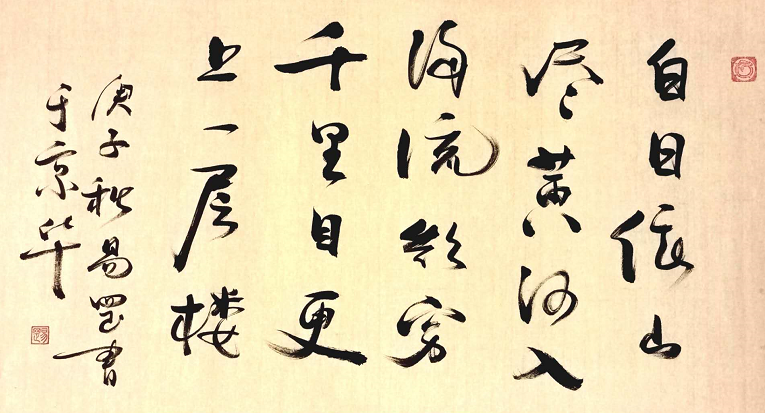 白日依山
尽黄河入
海流欲穷
千里目更
上一层楼
庚子秋易罡书
于京华